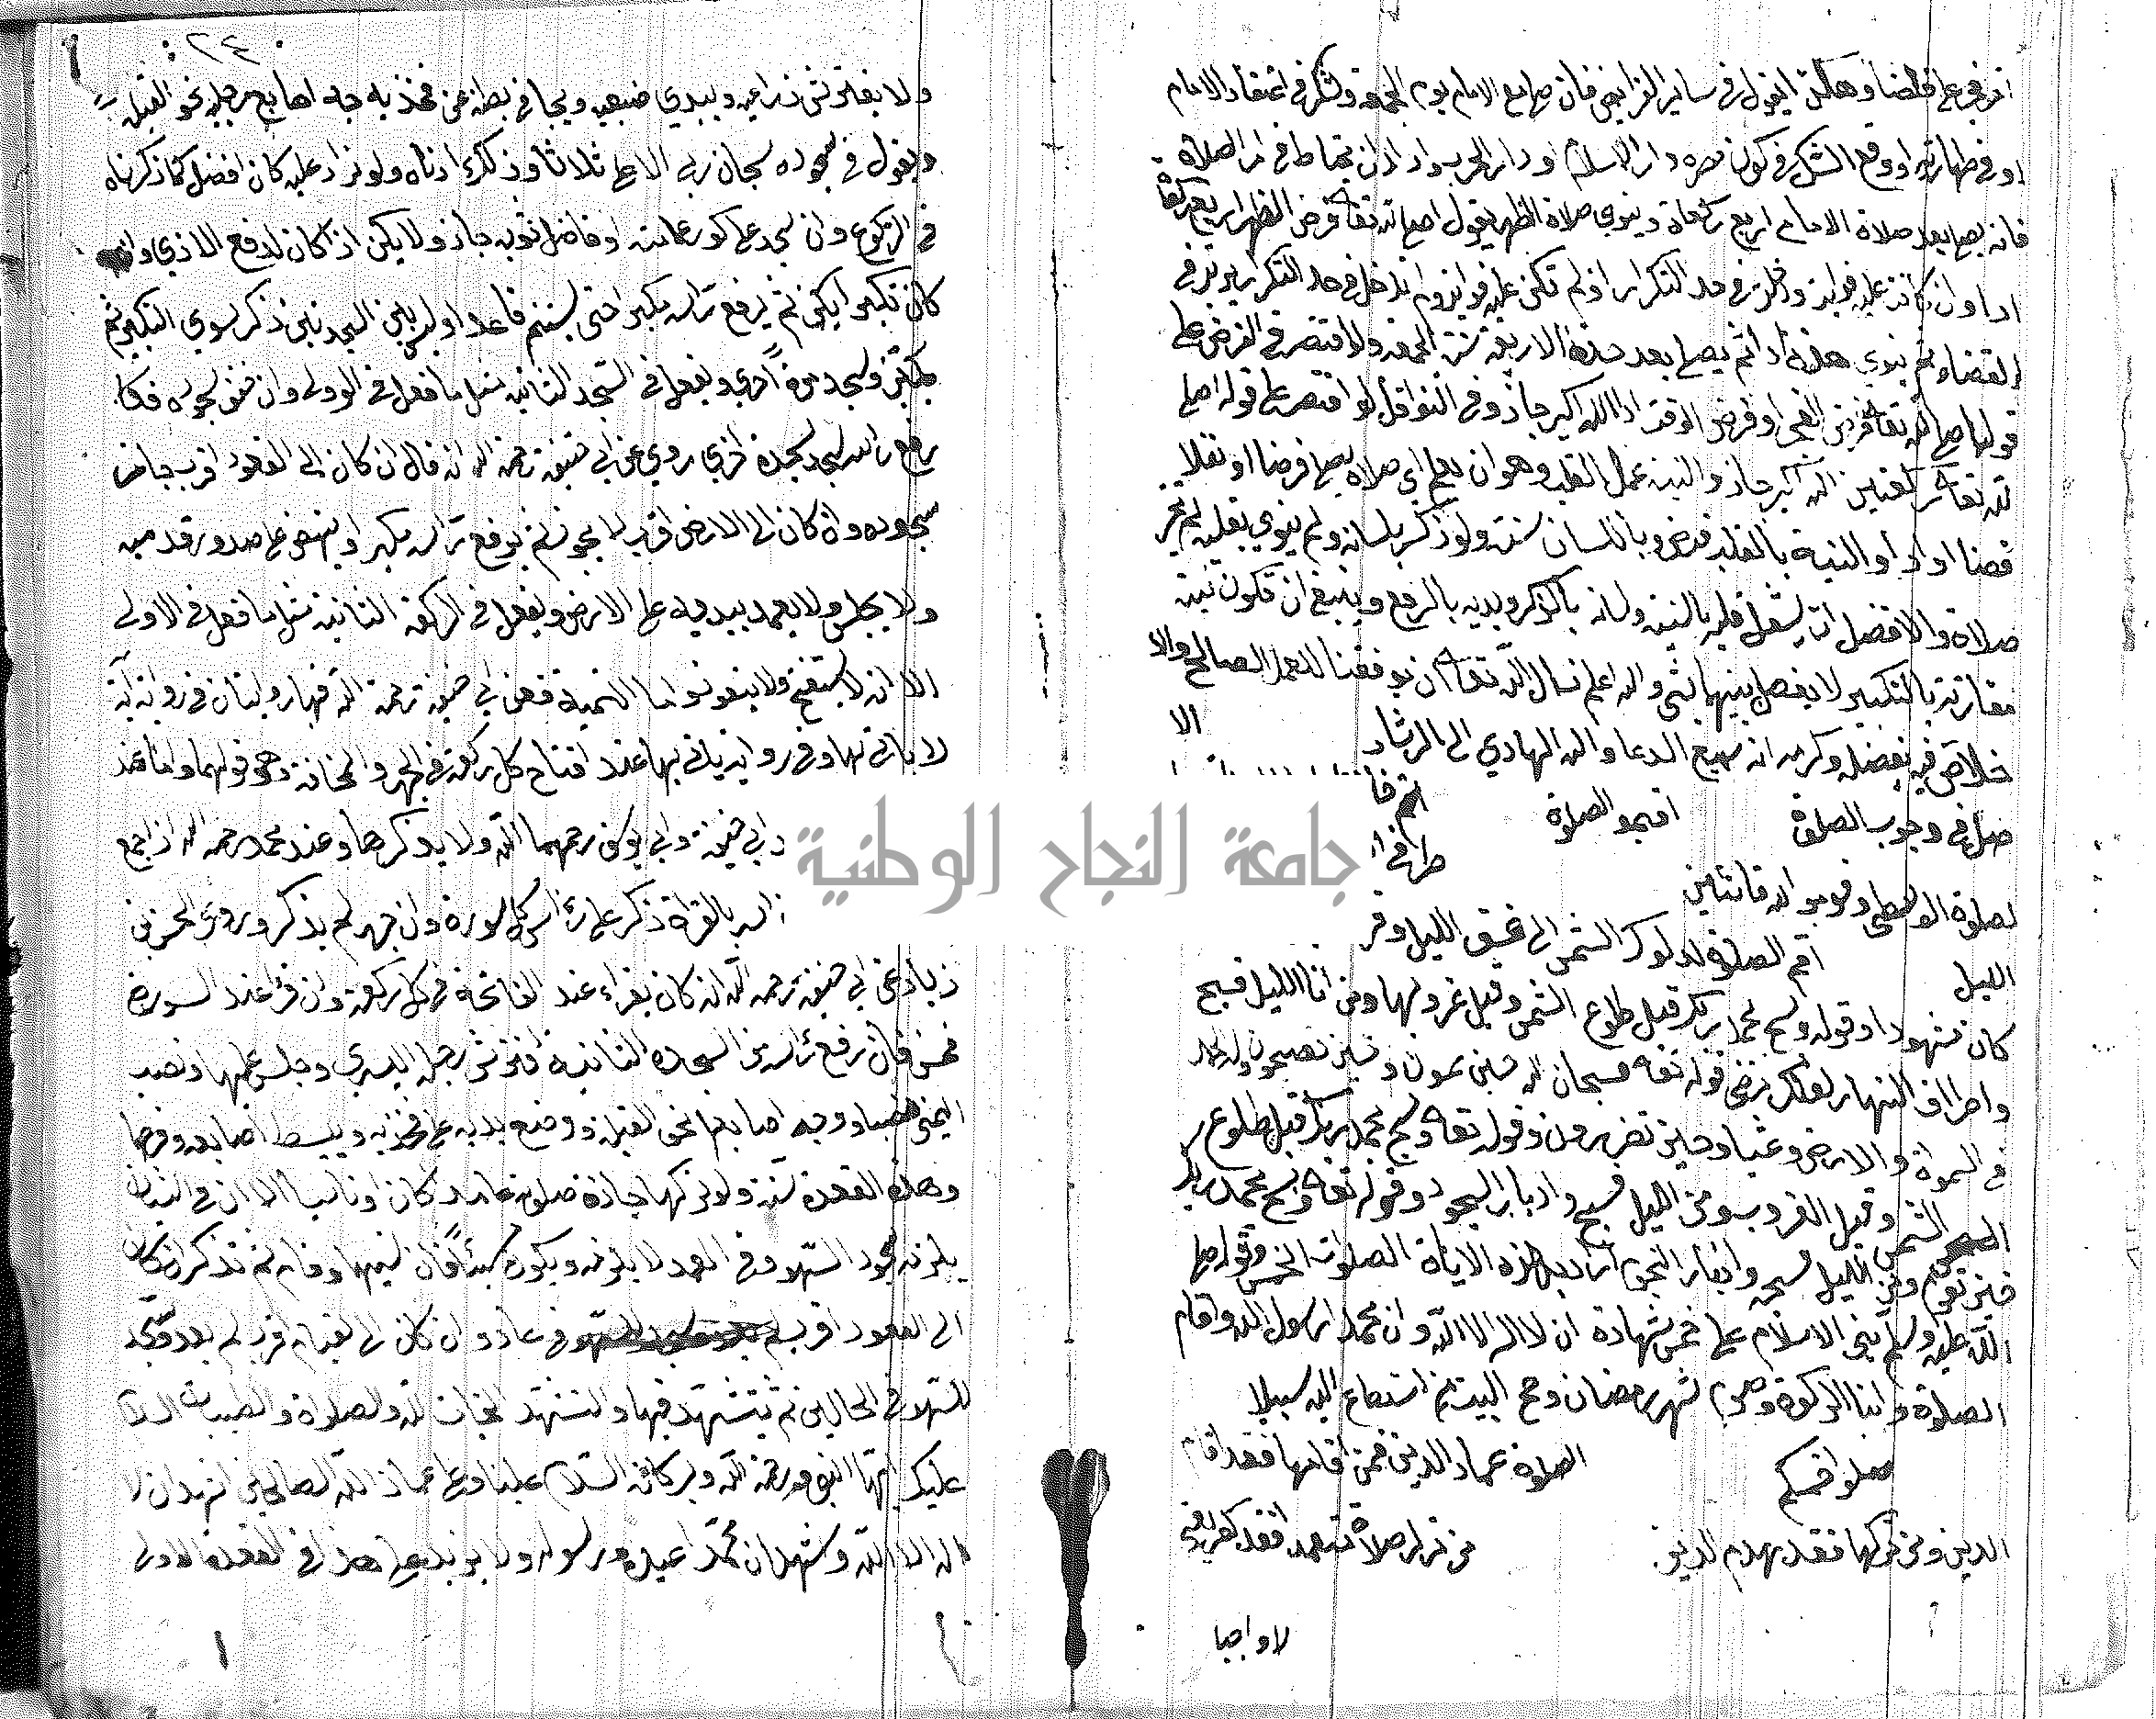 او في طهارته او وقع الشك في كون مصره دار الاسلام او دار الحرب واراد ان يحتاط في امر الصلاة
فانه يصلي بعد صلاة الامام اربع ركعاة وينوي صلاة الظهر يقول اصلي لله تعالى فرض الظهر اربع ركعا
القضاء ثم ينوي هذا ثم يصلي بعد هذه الاربعة سنة الجمعة ولو اقتصر في الفرض على
قوله اصلي لله تعالى فرض الفجر او فرض الوقت ادا الله اكبر جاز وفي النوافل لو اقتصر على قوله اصلي
لله تعالى ركعتين الله اكبر جاز والنية عمل القلب وهو ان يعلم اي صلاة يصلي فرضا او نفلا
قضا او ادا والنية بالقلب فرض وباللسان سنة ولو ذكر بلسانه ولم ينوي بقلبه لم تجز
صلاة والافضل ان يشغل قلبه بالنية ولسانه بالذكر ويديه بالرفع وينبغي ان تكون نيته
مقارنة بالتكبير لا يفصل بينهما بشي والله اعلم نسال الله تعالى ان يوفقنا للعمل الصالح والا
خلاص فيه بفضله وكرمه انه سميع الدعا والله الهادي الى الرشاد
الا
صل في وجوب الصلوة اقيمو الصلوة
لصلوة الوسطى وقومو لله قانتين
اقم الصلوة لدلوك الشمس الى غسق الليل وقر
الليل
كان مشهودا وقوله وسبح بحمد ربك قبل طلوع الشمس وقبل غروبها ومن انا الليل فسبح
واطراف النهار لعلك ترضى قوله تعالى فسبحان الله حين تمسون وحين تصبحون وله الحمد
في السمواة والارض وعشيا وحين تظهرون وقوله تعالى وسبح بحمد ربك قبل طلوع
الشمس وقبل الغروب ومن الليل فسبحه وادبار السجود وقوله تعالى وسبح بحمد ربك
حين تقوم ومن الليل فسبحه وادبار النجوم اراد بهذه الاياة الصلوات الخمس وقوله صلى
الله عليه وسلم بني الاسلام على خمس شهادة ان لا اله الا الله وان محمدا رسول الله واقام
الصلوة وايتا الزكوة وصوم شهر رمضان وحج البيت من استطاع اليه سبيلا
صلوا خمسكم الصلوة عماد الدين فمن اقامها فقد اقام
الدين ومن تركها فقد هدم الدين من ترك صلاة متعمدا فقد كفر يعني
لا واجبا
٢٤
ولا يفترش ذراعيه ويبدي ضبعيه ويجافي بطنه عن فخذيه ويوجه اصابع رجليه نحو القبلة
ويقول في سجوده سبحان ربي الاعلى ثلاثا وذلك ادناه ولو زاد عليه كان افضل كما ذكرناه
في الركوع وان سجد على كور عمامته او فاضل ثوبه جاز ولا يكره اذا كان لدفع الاذي وان
كان تكبرا يكره ثم يرفع راسه مكبرا حتى يستتم قاعدا وليس بين السجدتين ذكر سوي التكبير ثم
يكبر ويسجد مرة اخري ويفعل في السجدة الثانية مثل ما فعل في الاولى وان خفف سجوده فكا
رفع راسه ليسجد سجدة اخري روي عن ابي حنيفة رحمه الله انه قال ان كان الى القعود اقرب جاز
سجوده وان كان الى الارض اقرب لا يجوز ثم يرفع راسه مكبرا وينهض على صدور قدميه
ولا يجلس ولا يعمد بيديه على الارض ويفعل في الركعة الثانية مثل ما فعل في الاولى
الا انه لا يستفتح ولا يتعوذ واما التسمية فعن ابي حنيفة رحمه الله فيها روايتان في رواية انه
لا ياتي بها وفي رواية ياتي بها عند افتتاح كل ركعة في الجهر والمخافتة وهو قولهما واما عند
ابي حنيفة وابي يوسف رحمهما الله ولا يذكرها وعند محمد رحمه الله اذا جمع
السر بالقراة ذكر على راس كل سورة وان جهر لم يذكر وروي الحسن بن
زياد عن ابي حنيفة رحمه الله انه كان يقراء عند الفاتحة في كل ركعة وان قرا عند السورة
فحسن فان رفع راسه من السجدة الثانية افترش رجله اليسري وجلس عليها ونصب
اليمنى نصبا ووجه اصابعها نحو القبلة ووضع يديه على فخذيه ويبسط اصابعه وفرجها
وهذه القعدة سنة ولو تركها جازة صلوته عامدا كان او ناسيا الا ان في النسيان
يلزمه سجود السهو وفي العمد لا يلزمه ويكون مسيئا فان نسيها وقام ثم تذكر ان كان
الى القعود اقرب عاد وان كان الى القيام اقرب لم يعد ويسجد
للسهو في الحالين ثم يتشهد فيها والتشهد التحيات لله والصلواة والطيبات السلام
عليك ايها النبي ورحمة الله وبركاته السلام علينا وعلى عباد الله الصالحين اشهد ان لا
اله الا الله واشهد ان محمدا عبده ورسوله ولا يزيد على هذا في القعدة الاولى
جامعة النجاح الوطنية